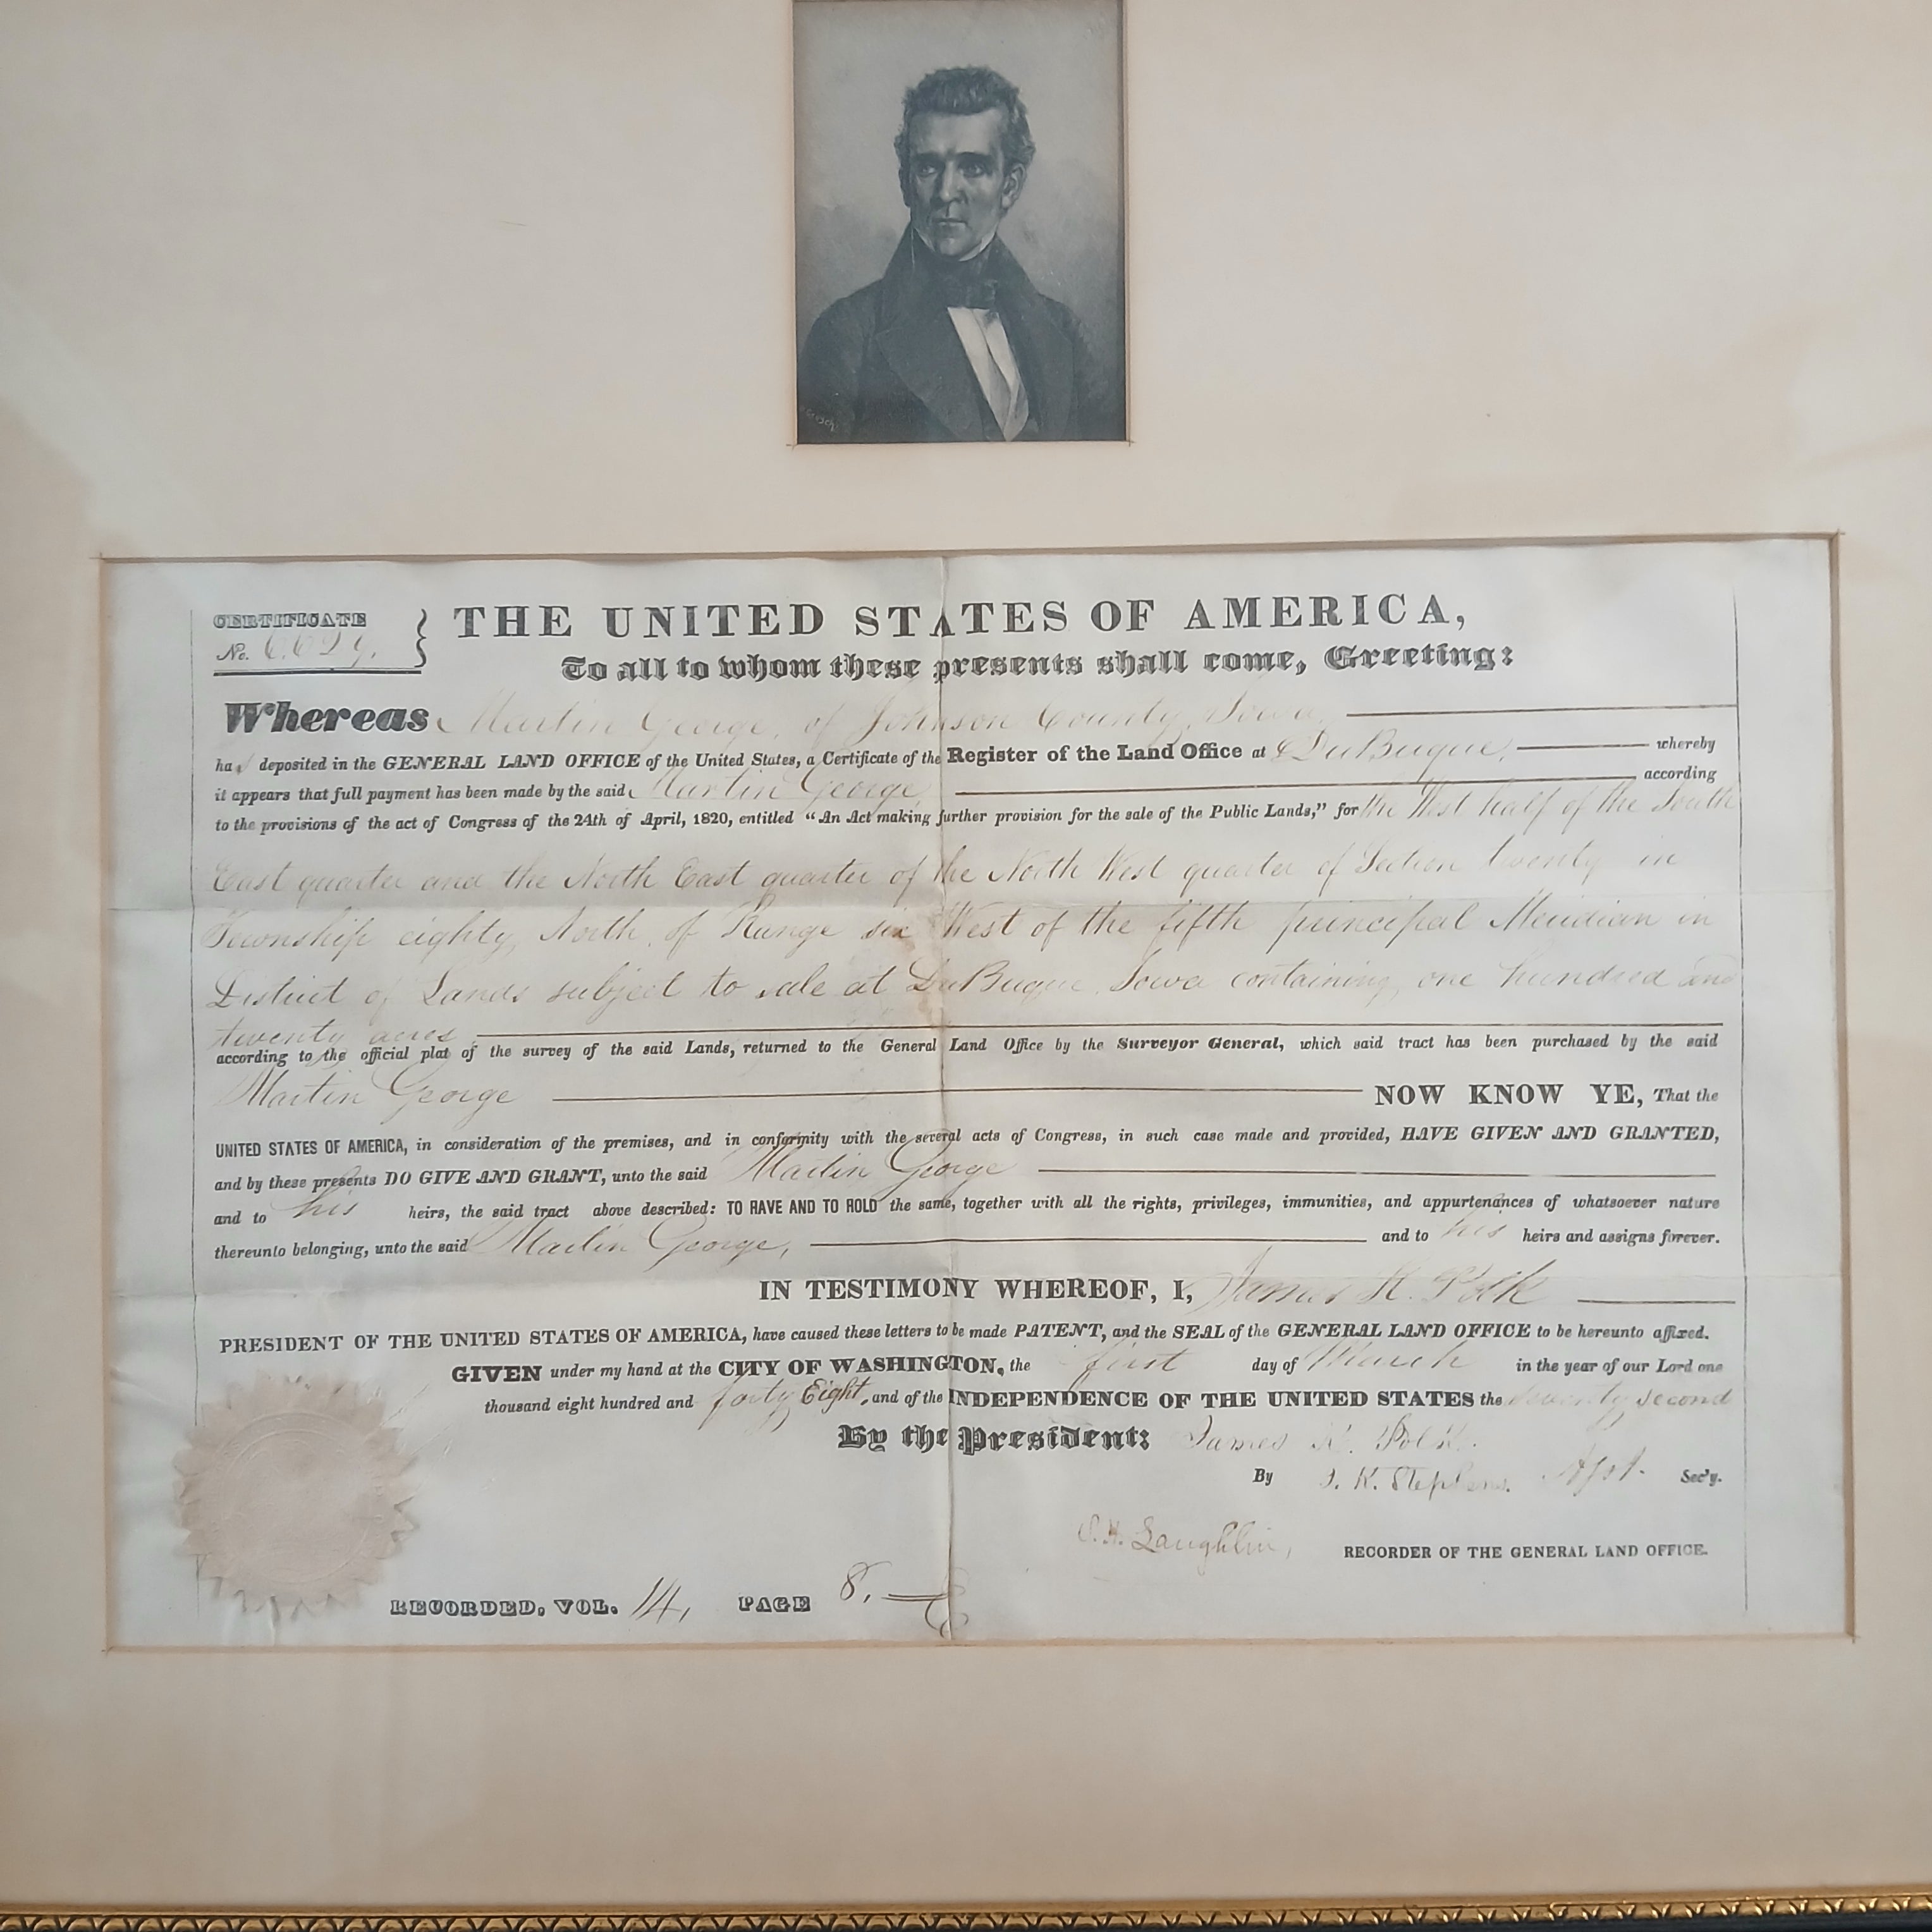 CERTIFICATE
No. 6629.
THE UNITED STATES OF AMERICA,
To all to whom these presents shall come, Greeting:
Whereas Martin George, of Johnson County, Iowa,
ha deposited in the GENERAL LAND OFFICE of the United States, a Certificate of the Register of the Land Office at DuBuque, whereby
it appears that full payment has been made by the said Martin George, according
to the provisions of the act of Congress of the 24th of April, 1820, entitled "An Act making further provision for the sale of the Public Lands," for the West half of the South
East quarter and the North East quarter of the North West quarter of Section twenty in
Township eighty, North, of Range six West of the fifth principal Meridian in
District of Lands subject to sale at DuBuque Iowa containing, one hundred and
twenty acres
according to the official plat of the survey of the said Lands, returned to the General Land Office by the Surveyor General, which said tract has been purchased by the said
Martin George NOW KNOW YE, That the
UNITED STATES OF AMERICA, in consideration of the premises, and in conformity with the several acts of Congress, in such case made and provided, HAVE GIVEN AND GRANTED,
and by these presents DO GIVE AND GRANT, unto the said Martin George
and to his heirs, the said tract above described: TO HAVE AND TO HOLD the same, together with all the rights, privileges, immunities, and appurtenances of whatsoever nature
thereunto belonging, unto the said Martin George, and to his heirs and assigns forever.
IN TESTIMONY WHEREOF, I, James K. Polk
PRESIDENT OF THE UNITED STATES OF AMERICA, have caused these letters to be made PATENT, and the SEAL of the GENERAL LAND OFFICE to be hereunto affixed.
GIVEN under my hand at the CITY OF WASHINGTON, the first day of March in the year of our Lord one
thousand eight hundred and forty Eight, and of the INDEPENDENCE OF THE UNITED STATES the seventy second
By the President: James K. Polk.
By J. K. Stephens. Asst. Sec'y.
S. H. Laughlin, RECORDER OF THE GENERAL LAND OFFICE.
RECORDED, VOL. 14, PAGE 8.